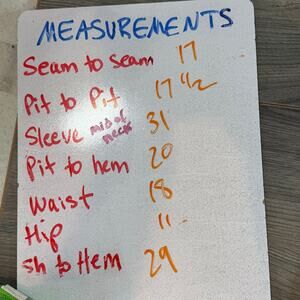 MEASUREMENTS
Seam to Seam 17
Pit to Pit 17 1/2
Sleeve mid of neck 31
Pit to hem 20
Waist 18
Hip 11
Sh to Hem 29